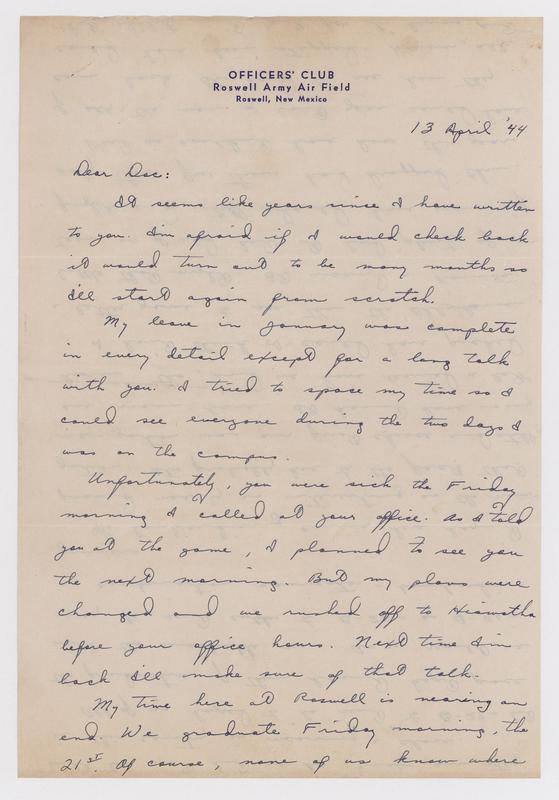 OFFICERS' CLUB
Roswell Army Air Field
Roswell, New Mexico
13 April '44
Dear Doc:
It seems like years since I have written
to you. I'm afraid if I would check back
it would turn out to be many months so
I'll start again from scratch.
My leave in January was complete
in every detail except for a long talk
with you. I tried to space my time so I
could see everyone during the two days I
was on the campus.
Unfortunately, you were sick the Friday
morning I called at your office. As I told
you at the game, I planned to see you
the next morning. But my plans were
changed and we rushed off to Hiawatha
before your office hours. Next time I'm
back I'll make sure of that talk.
My time here at Roswell is nearing an
end. We graduate Friday morning, the
21st. Of course, none of us know where